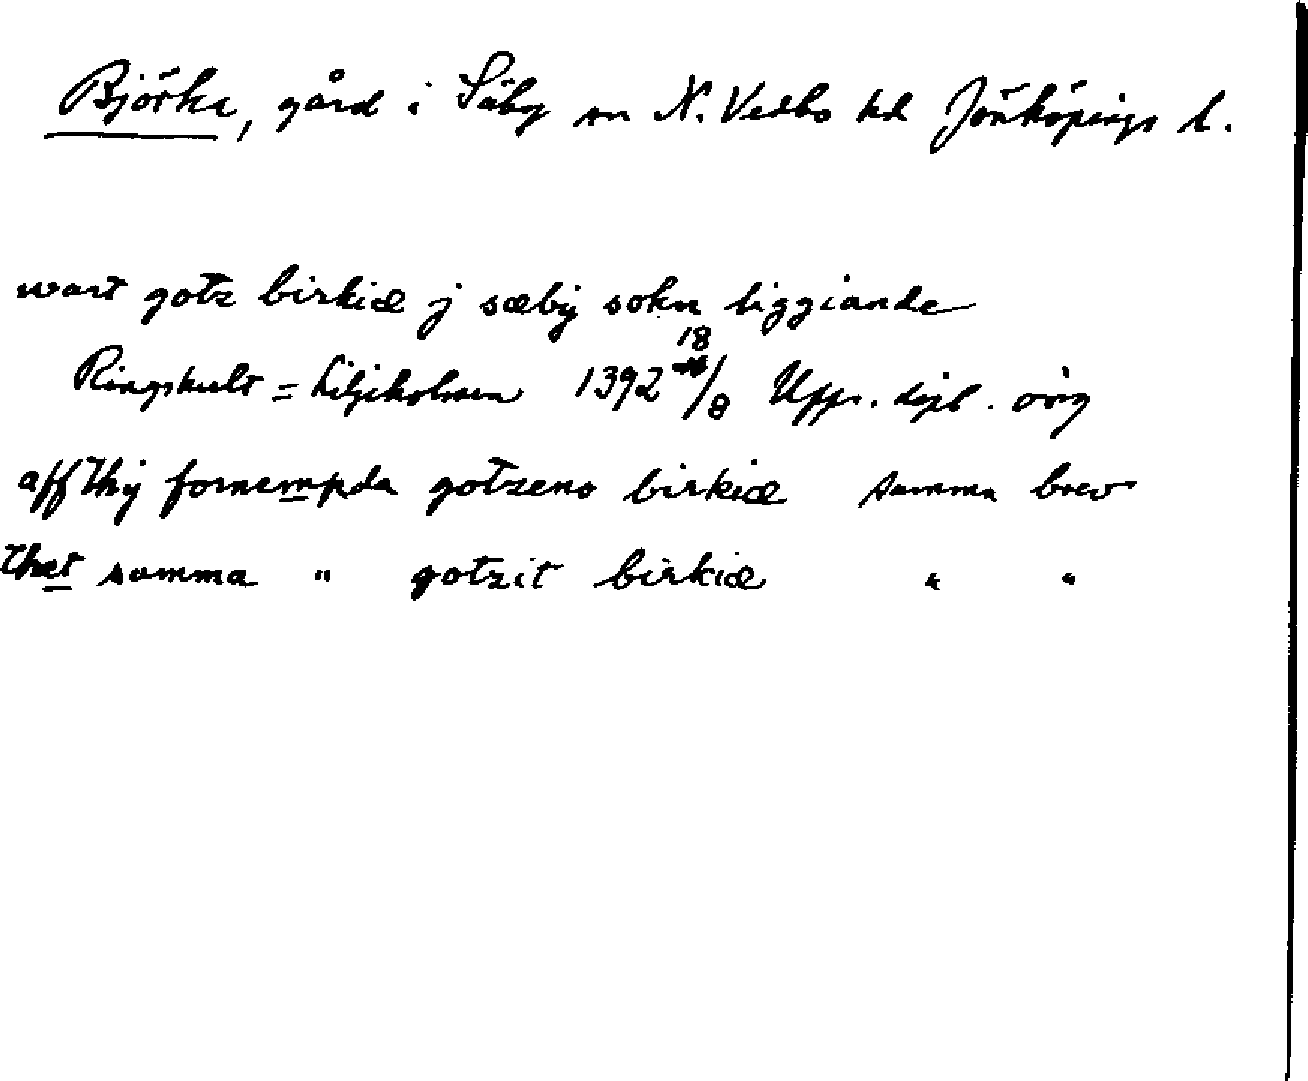 Björka, gård i Säby sn N. Vedbo hd Jönköpings l.
wart gotz birkiæ j sæbÿ sokn liggiande
Ringshult = Liljeholmen 1392 18/8 Upps. dipl. orig
aff thÿ fornempda gotzeno birkiæ samma brev
thet samma " gotzit birkiæ " "